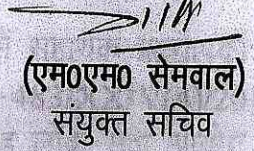 (एम0एम0 सेमवाल)
संयुक्त सचिव